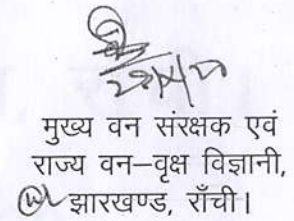 मुख्य वन संरक्षक एवं
राज्य वन–वृक्ष विज्ञानी,
झारखण्ड, राँची।